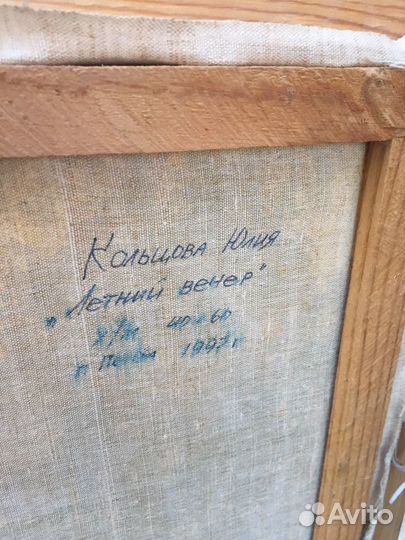 Кольцова Юлия
"Летний вечер"
х/м 40х60
г. 1997 г
Avito